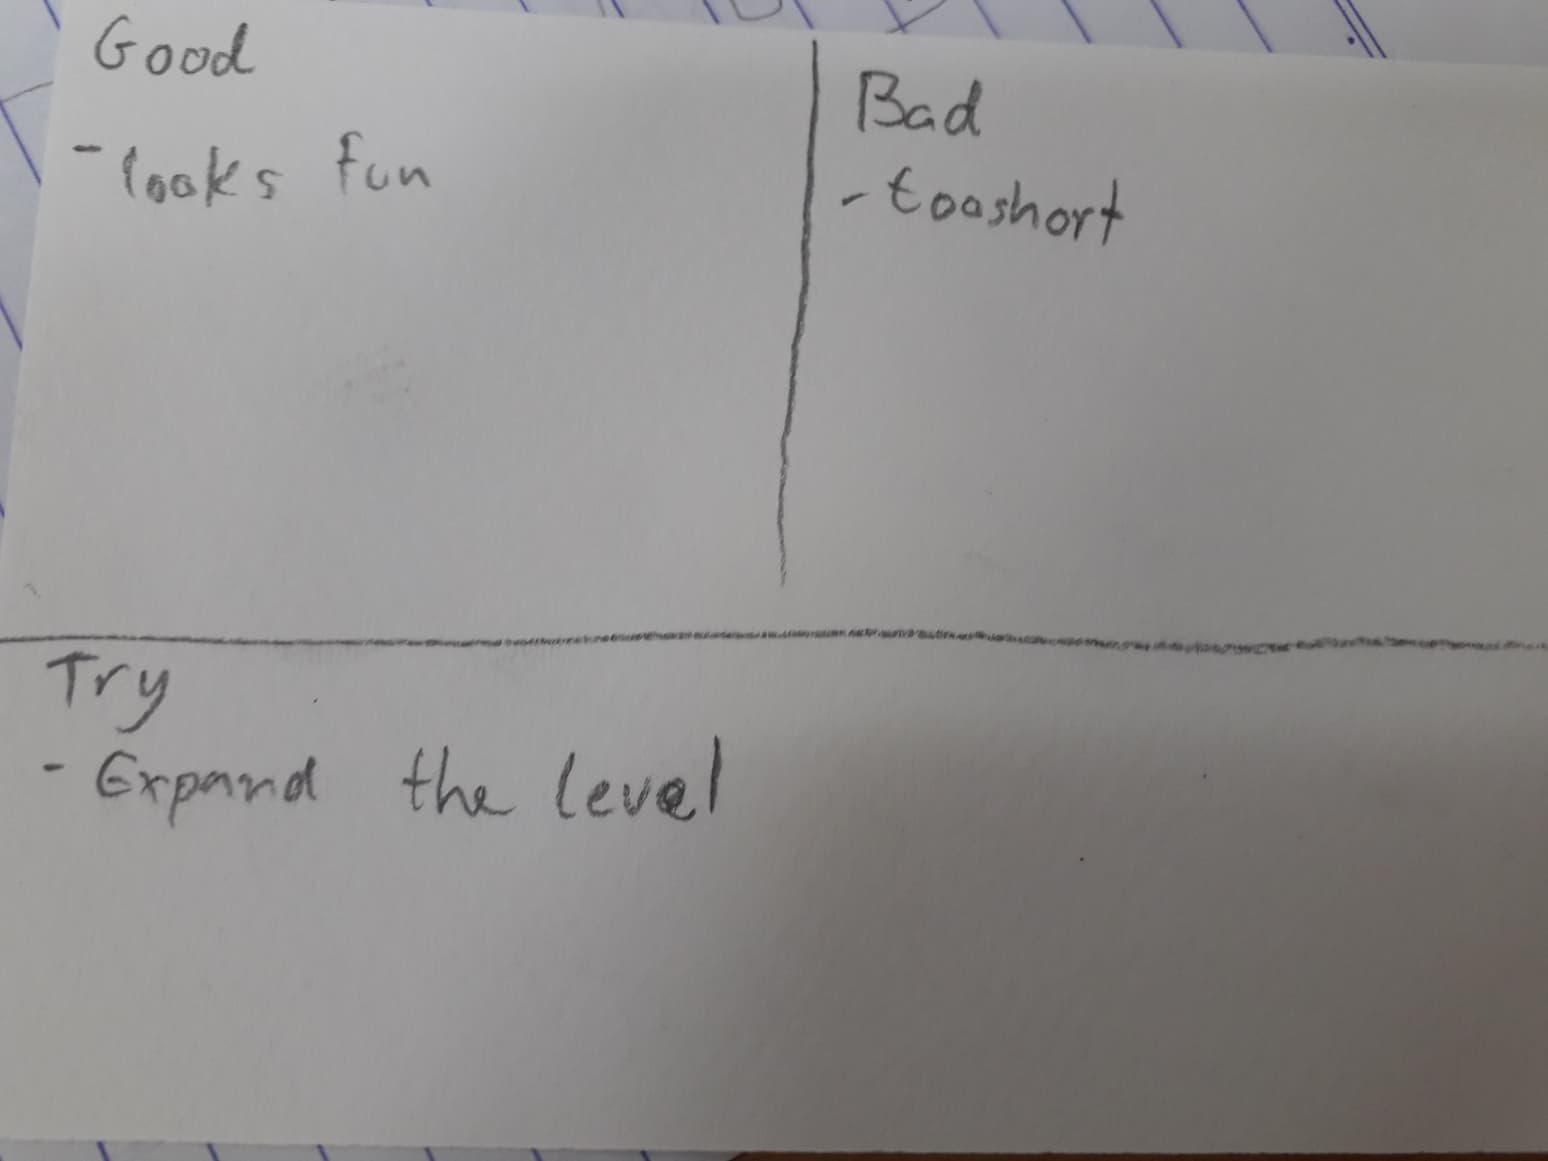 Good
- looks fun
Bad
- tooshort
Try
- Expand the level